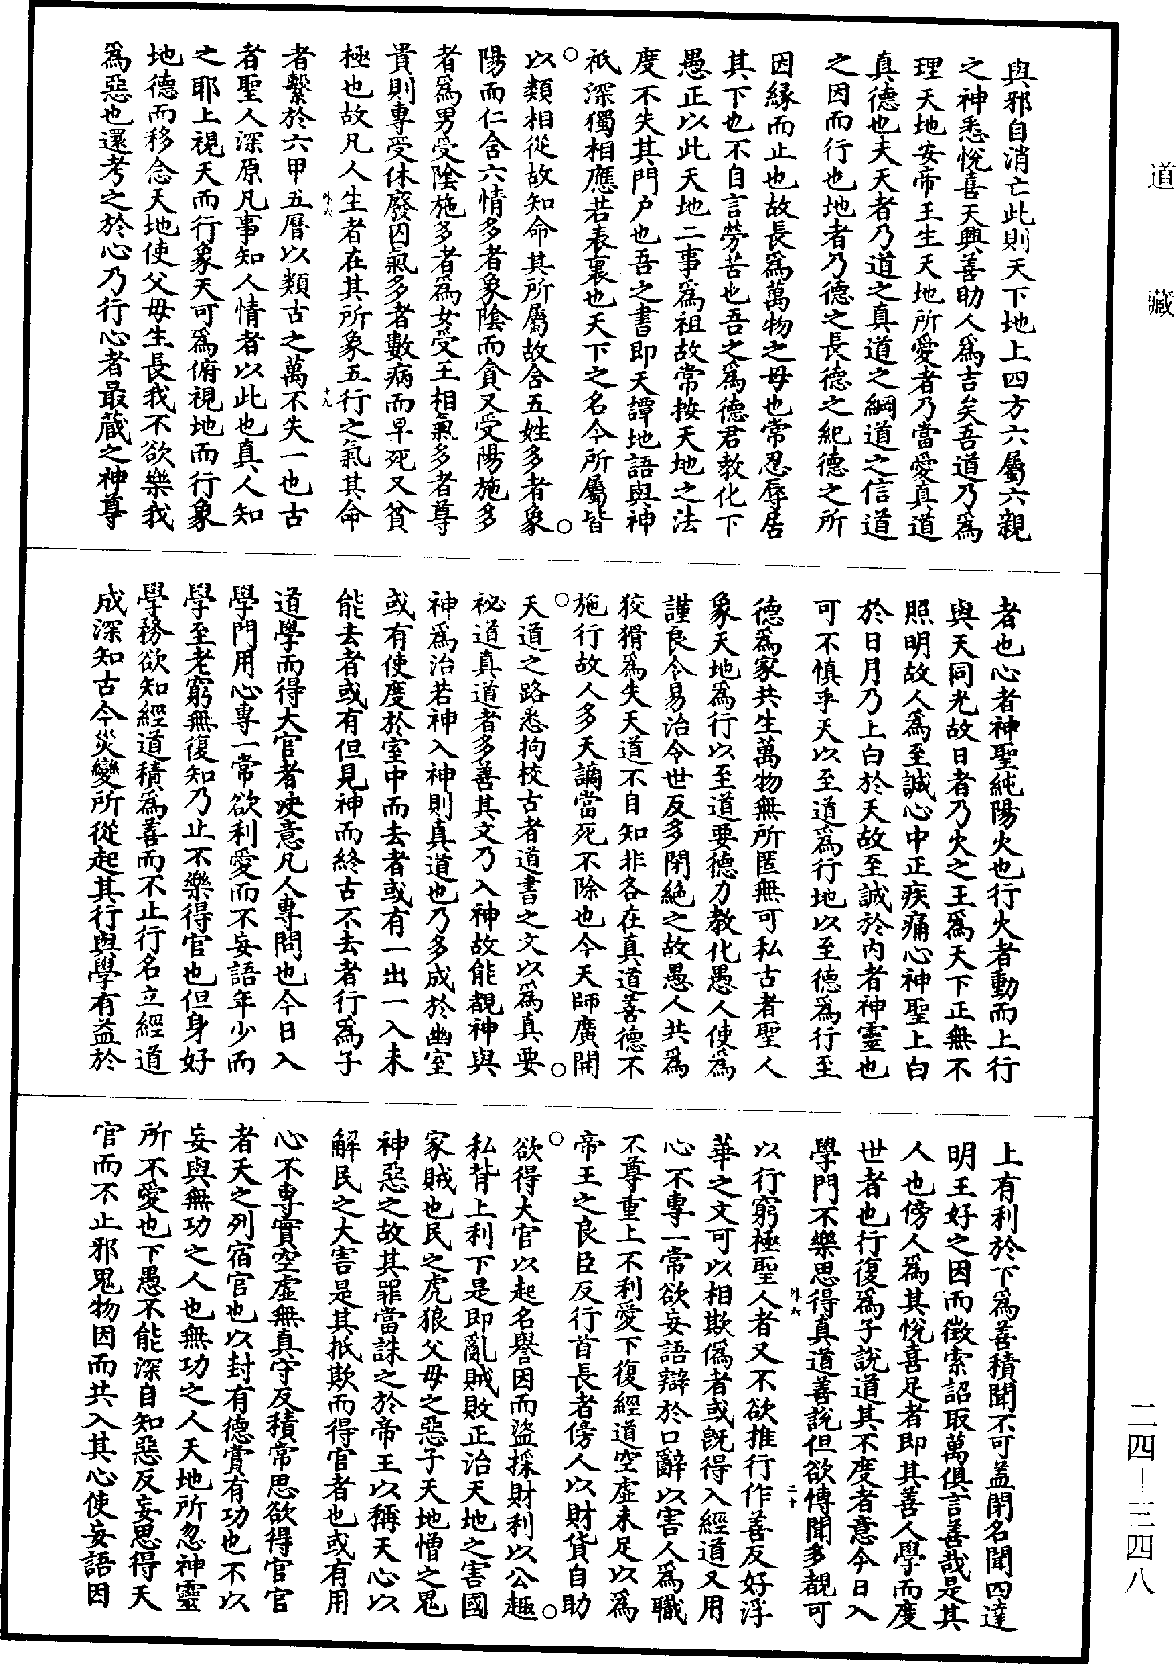 道藏
與邪自消亡此則天下地上四方六屬六親
之神悉悅喜天興善助人爲吉矣吾道乃爲
理天地安帝王生天地所愛者乃當愛真道
真德也夫天者乃道之真道之綱道之信道
之因而行也地者乃德之長德之紀德之所
因緣而止也故長爲萬物之母也常忍辱居
其下也不自言勞苦也吾之爲德君教化下
愚正以此天地二事爲祖故常按天地之法
度不失其門户也吾之書即天譚地語與神
祇深獨相應若表裏也天下之名今所屬皆
○以類相從故知命其所屬故含五姓多者象○
陽而仁含六情多者象陰而貪又受陽施多
者爲男受陰施多者爲女受王相氣多者尊
貴則專受休廢囚氣多者數病而早死又貧
極也故凡人生者在其所象五行之氣其命
外六 十九
者繫於六甲五曆以類古之萬不失一也古
者聖人深原凡事知人情者以此也真人知
之耶上視天而行象天可爲俯視地而行象
地德而移念天地使父母生長我不欲樂我
爲惡也還考之於心乃行心者最藏之神尊
者也心者神聖純陽火也行火者動而上行
與天同光故日者乃火之王爲天下正無不
照明故人爲至誠心中正疾痛心神聖上白
於日月乃上白於天故至誠於内者神靈也
可不慎乎天以至道爲行地以至德爲行至
德爲家共生萬物無所匿無可私古者聖人
象天地爲行以至道要德力教化愚人使爲
謹良令易治今世反多閉絶之故愚人共爲
狡猾爲失天道不自知非各在真道善德不
施行故人多夭謫當死不除也今天師廣開
○天道之路悉拘校古者道書之文以爲真要○
祕道真道者多善其文乃入神故能覩神與
神爲治若神入神則真道也乃多成於幽室
或有使度於室中而去者或有一出一入未
能去者或有但見神而終古不去者行爲子
道學而得大官者决意凡人專問也今日入
學門用心專一常欲利愛而不妄語年少而
學至老窮無復知乃止不樂得官也但身好
學務欲知經道積爲善而不止行名立經道
成深知古今災變所從起其行與學有益於
上有利於下爲善積聞不可蓋聞名聞四達
明王好之因而徵索詔取萬俱言善哉是其
人也傍人爲其悅喜足者即其善人學而度
世者也行復爲子說道其不度者意今日入
學門不樂思得真道善說但欲博聞多覩可
外六 二十
以行窮極聖人者又不欲推行作善反好浮
華之文可以相欺僞者或既得入經道又用
心不專一常欲妄語辯於口辭以害人爲職
不尊重上不利愛下復經道空虚未足以爲
帝王之良臣反行首長者傍人以財貨自助
○欲得大官以起名譽因而盜採財利以公趣○
私背上利下是即亂賊敗正治天地之害國
家賊也民之虎狼父母之惡子天地憎之鬼
神惡之故其罪當誅之於帝王以稱天心以
解民之大害是其抵欺而得官者也或有用
心不專實空虚無真守反積常思欲得官官
者天之列宿官也以封有德賞有功也不以
妄與無功之人也無功之人天地所忽神靈
所不愛也下愚不能深自知惡反妄思得天
官而不止邪鬼物因而共入其心使妄語因
二四—三四八